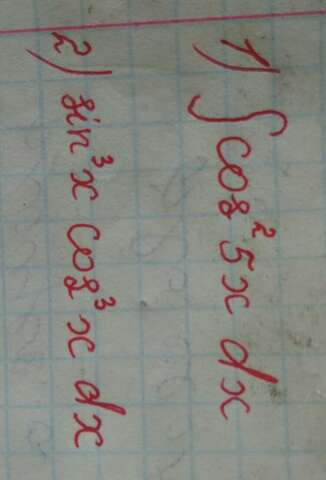 1) ∫cos²5x dx
2) sin³x cos³x dx